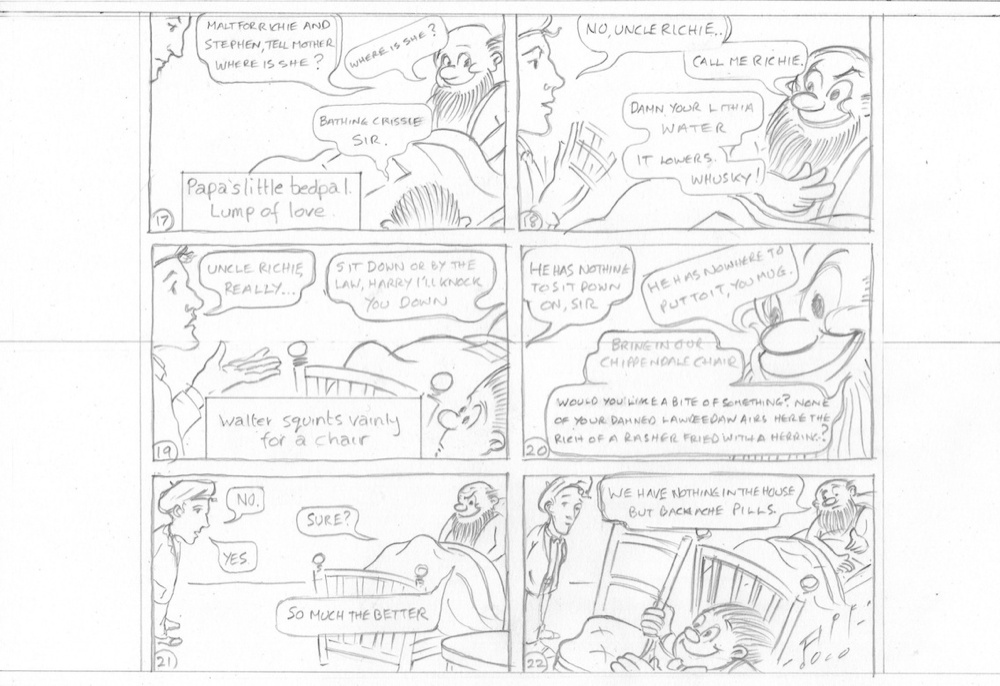 MALT FOR RICHIE AND
STEPHEN, TELL MOTHER
WHERE IS SHE?
WHERE IS SHE?
BATHING CRISSIE
SIR.
Papa's little bedpal.
Lump of love.
17
NO, UNCLE RICHIE..
CALL ME RICHIE.
DAMN YOUR LITHIA
WATER
IT LOWERS.
WHUSKY!
18
UNCLE RICHIE,
REALLY...
SIT DOWN OR BY THE
LAW, HARRY I'LL KNOCK
YOU DOWN
walter squints vainly
for a chair
19
HE HAS NOTHING
TO SIT DOWN
ON, SIR
HE HAS NOWHERE TO
PUT TO IT, YOU MUG.
BRING IN OUR
CHIPPENDALE CHAIR
WOULD YOU LIKE A BITE OF SOMETHING? NONE
OF YOUR DAMNED LAWDEEDAW AIRS HERE THE
RICH OF A RASHER FRIED WITH A HERRING?
20
NO.
SURE?
YES.
SO MUCH THE BETTER
21
WE HAVE NOTHING IN THE HOUSE
BUT BACKACHE PILLS.
22